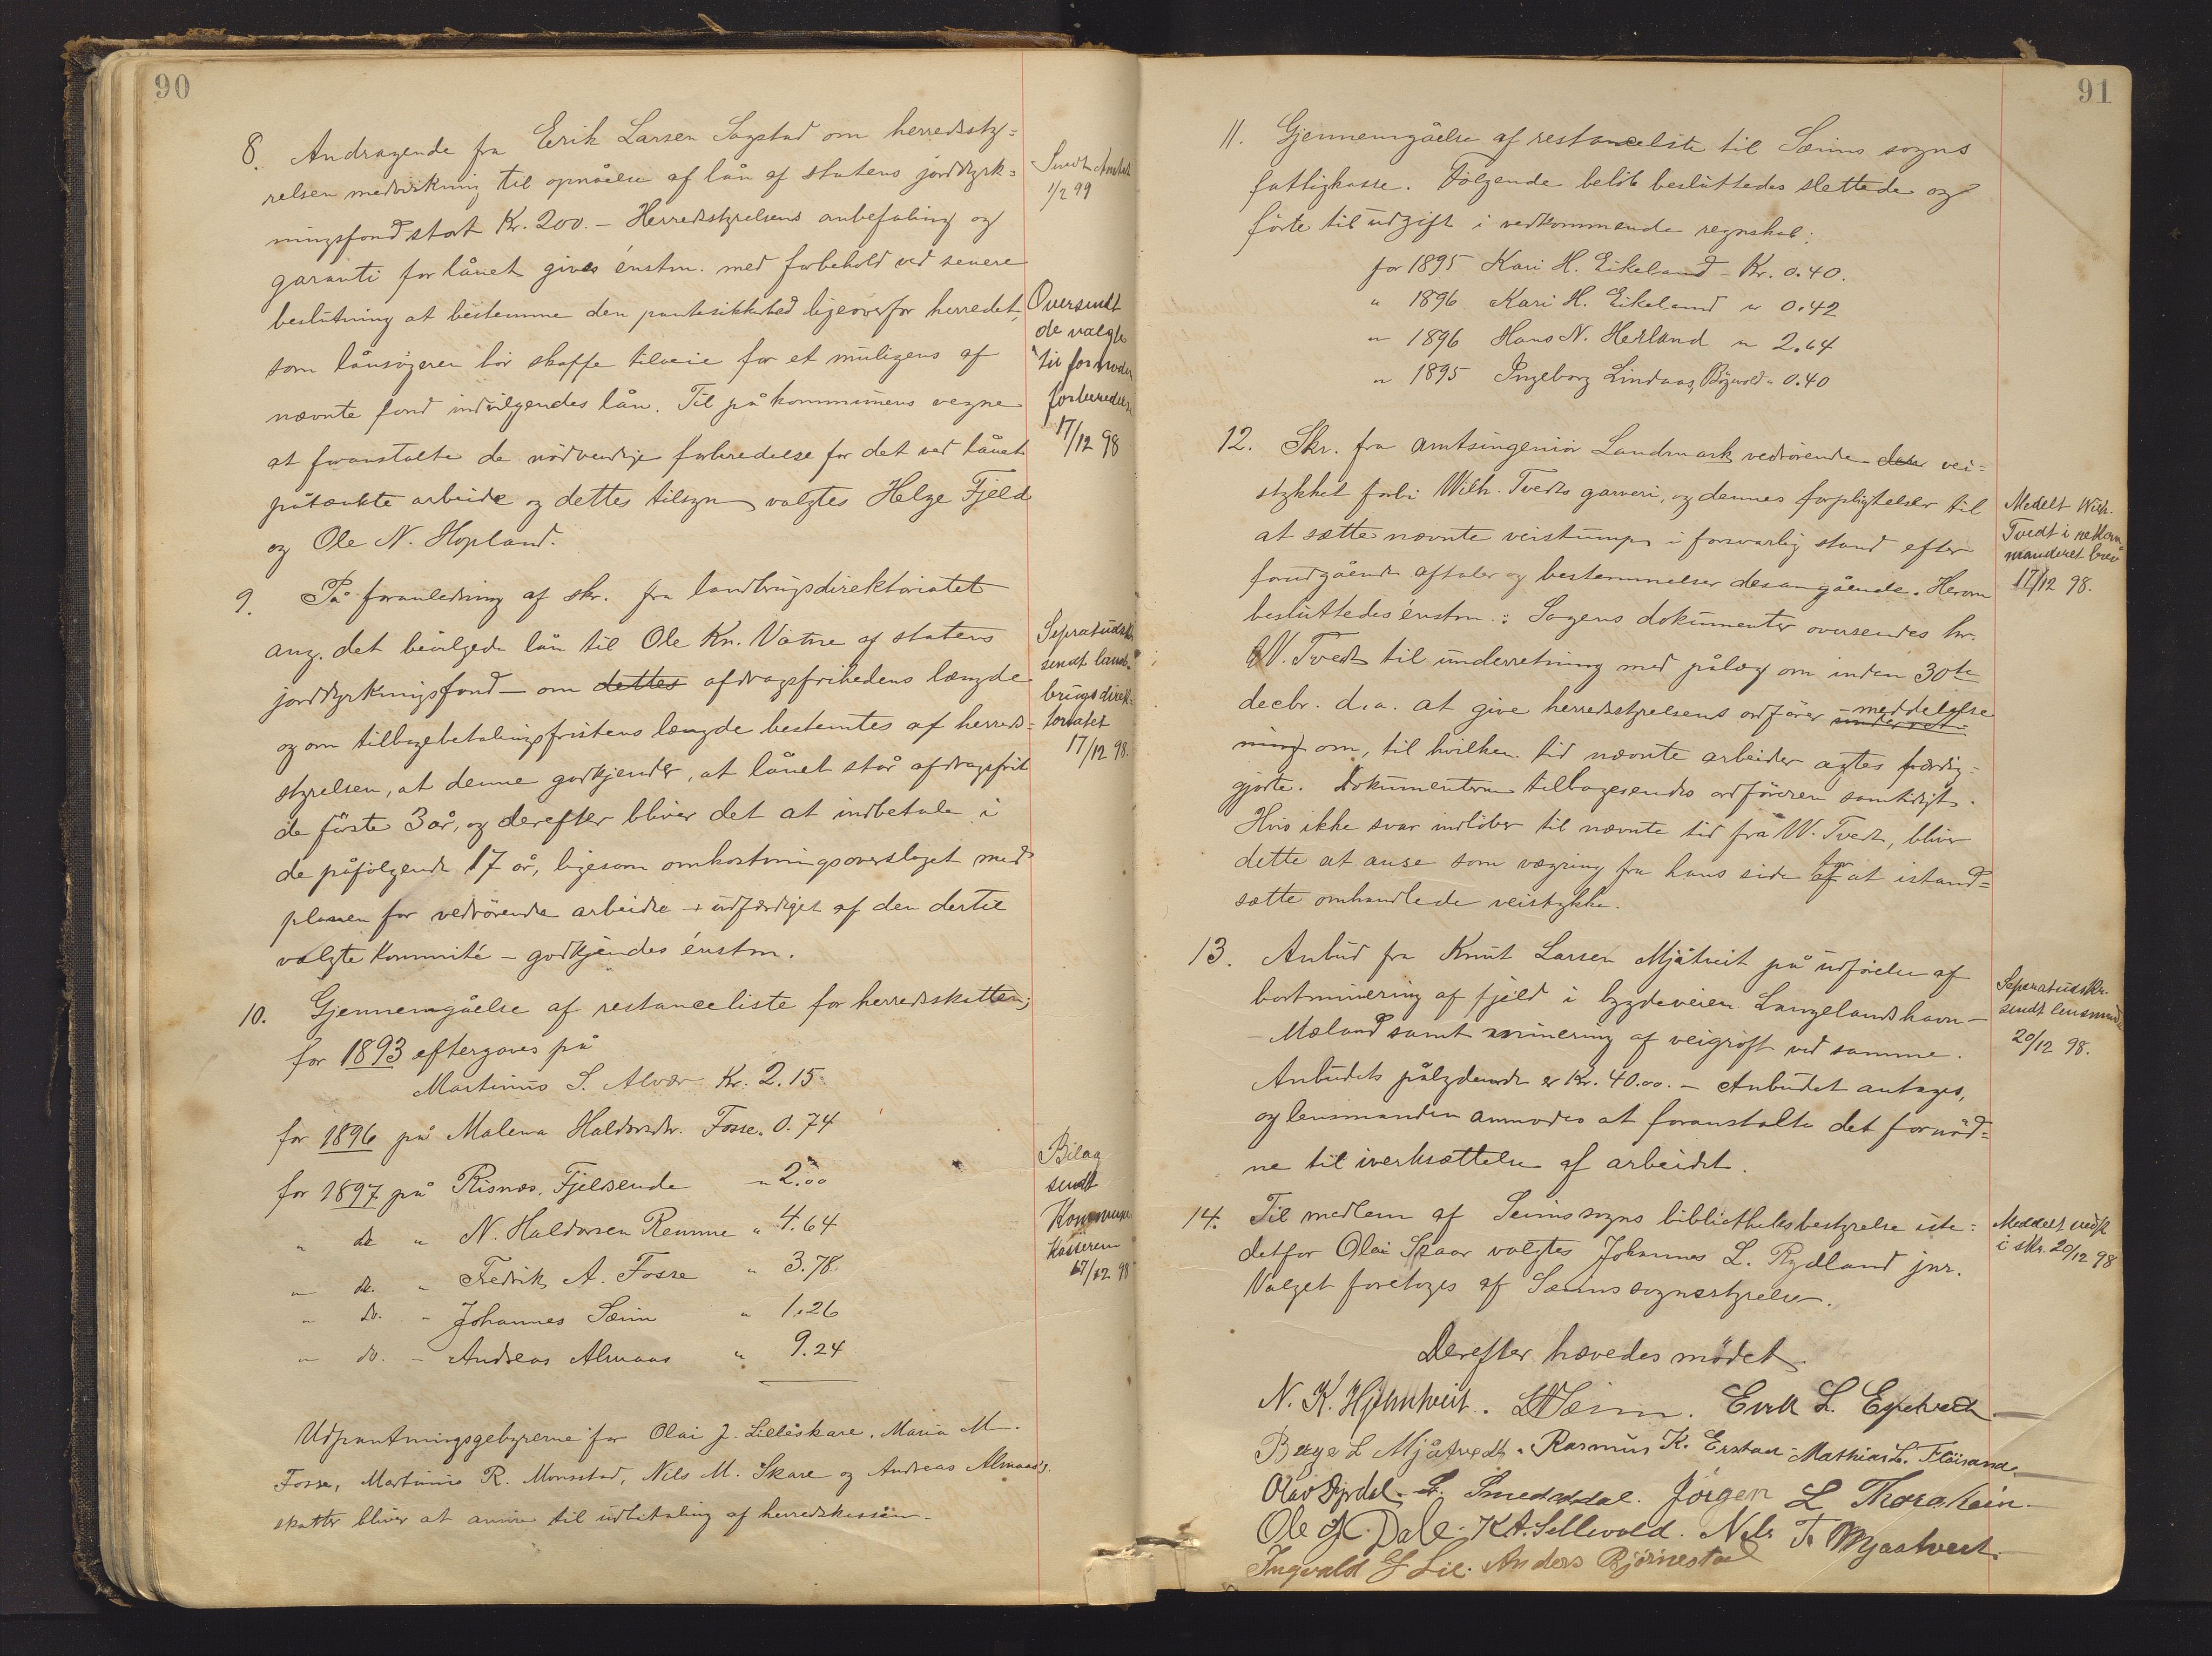 90
8. Andragende fra Erik Larsen Sagstad om herredssty=
relsen medvirkning til opnåelse af lån af statens jorddyrk=
ningsfond stort Kr. 200. - Herredsstyrelsens anbefaling og
garanti for lånet gives énstm. med forbehold ved senere
beslutning at bestemme den pantesikkerhed ligeoverfor herredet,
som lånsøgeren bör skaffe tilveie for et muligens af
nævnte fond indvilgendes lån. Til på kommunens vegne
at foranstalte de nödvendige forberedelse for det ved lånet
påtænkte arbeide og dettes tilsyn valgtes Helge Fjeld
og Ole N. Hopland.
Sendt Amtet
1/2 99
Oversendt
de valgte
til fornøden
forberedelse
17/12 98
9. På foranledning af skr. fra landbrugsdirektoriatet
ang. det bevilgede lån til Ole Kn. Vatne af statens
jorddyrkningsfond - om dettes afdragsfrihedens længde
og om tilbagebetalingsfristens længde bestemtes af herreds=
styrelsen, at denne godkjender, at lånet står afdragsfrit
de förste 3 år, og derefter bliver det at indbetale i
de påfölgende 17 år, ligesom omkostningsoverslaget med
planen for vedrörende arbeide - udfærdiget af den dertil
valgte Kommité - godkjendes énstm.
Sepratudskr
sendt land-
brugsdirek-
toriatet
17/12 98.
10. Gjennemgåelse af restanceliste for herredsskatten;
for 1893 eftergaves på
Martinus S. Alvær Kr: 2.15
for 1896 på Malena Haldorsdtr. Fosse " 0.74
for 1897 på Risnæs, Fjeldsende " 2.00
" do " N. Haldorsen Remme " 4.64
" do. " Fredrik A. Fosse " 3.78
" do. " Johannes Sæim " 1.26
" do. - Andreas Almaas " 9.24
Bilag
sendt
Kommune
Kasseren
17/12 98
Udpantningsgebyrerne for Olai J. Lilleskare, Maria M.
Fosse, Martinus R. Monsstad, Nils M. Skare og Andreas Almaas's
skatter bliver at anvise til udbetaling af herredskassen.
91
11. Gjennemgåelse af restanceliste til Sæims sogns
fattigkasse. Fölgende belöb besluttedes slettede og
förte til udgift i vedkommende regnskab:
for 1895 Kari H. Eikeland - Kr. 0.40.
" 1896 Kari H. Eikeland " 0.42
" 1896 Hans N. Herland " 2.64
" 1895 Ingeborg Lindaas, Bögwold " 0.40
12. Skr. fra amtsingeniör Landmark vedrörende den vei=
stykket forbi Wilh. Tvedts garveri, og dennes forpligtelser til
at sætte nævnte veistump i forsvarlig stand efter
forudgående aftaler og bestemmelser desangående. Herom
besluttedes énstm.: Sagens dokumenter oversendes hr.
W. Tvedt til underretning med pålæg om inden 30te
decbr. d. a. at give herredsstyrelsens ordförer underret- meddelelse
ning om, til hvilken tid nævnte arbeider agtes færdig=
gjorte. Dokumenterne tilbagesendes ordföreren samtidigt.
Hvis ikke svar indlöber til nævnte tid fra W. Tvedt, bliver
dette at anse som vægring fra hans side af for at istand=
sætte omhandlede veistykke.
Medelt Wilh.
Tvedt i rekom
manderet brev
17/12 98.
13. Anbud fra Knut Larsen Mjåtveit på udförelse af
bortminering af fjeld i bygdeveien Langelandshavn -
- Mæland samt minering af veigröft ved samme.
Anbudets pålydende er Kr. 40.00. - Anbudet antages,
og lensmanden anmodes at foranstalte det fornöd=
ne til iverksættelse af arbeidet.
Seperatudskr.
sendt lensmand
20/12 98.
14. Til medlem af Seims sogns bibliotheksbestyrelse iste=
detfor Olai Skaar valgtes Johannes L. Rydland jnr.
Valget foretoges af Sæims sognestyrelse.
Meddelt vedk
i skr. 20/12 98
Derefter hævedes mödet.
N. K. Hjelmtveit. Sæim. Erik L. Epetvedt
Berge L Mjåtvedt. Rasmus K. Erstad - Mathias L. Flöisand.
Olav Syrdal. L. Smedsdal. Jörgen L Thorshein.
Ole J. Dale. K A. Sellevold. Nils T. Mjaatveit.
Ingvald G Lie. Anders Bjørnestad